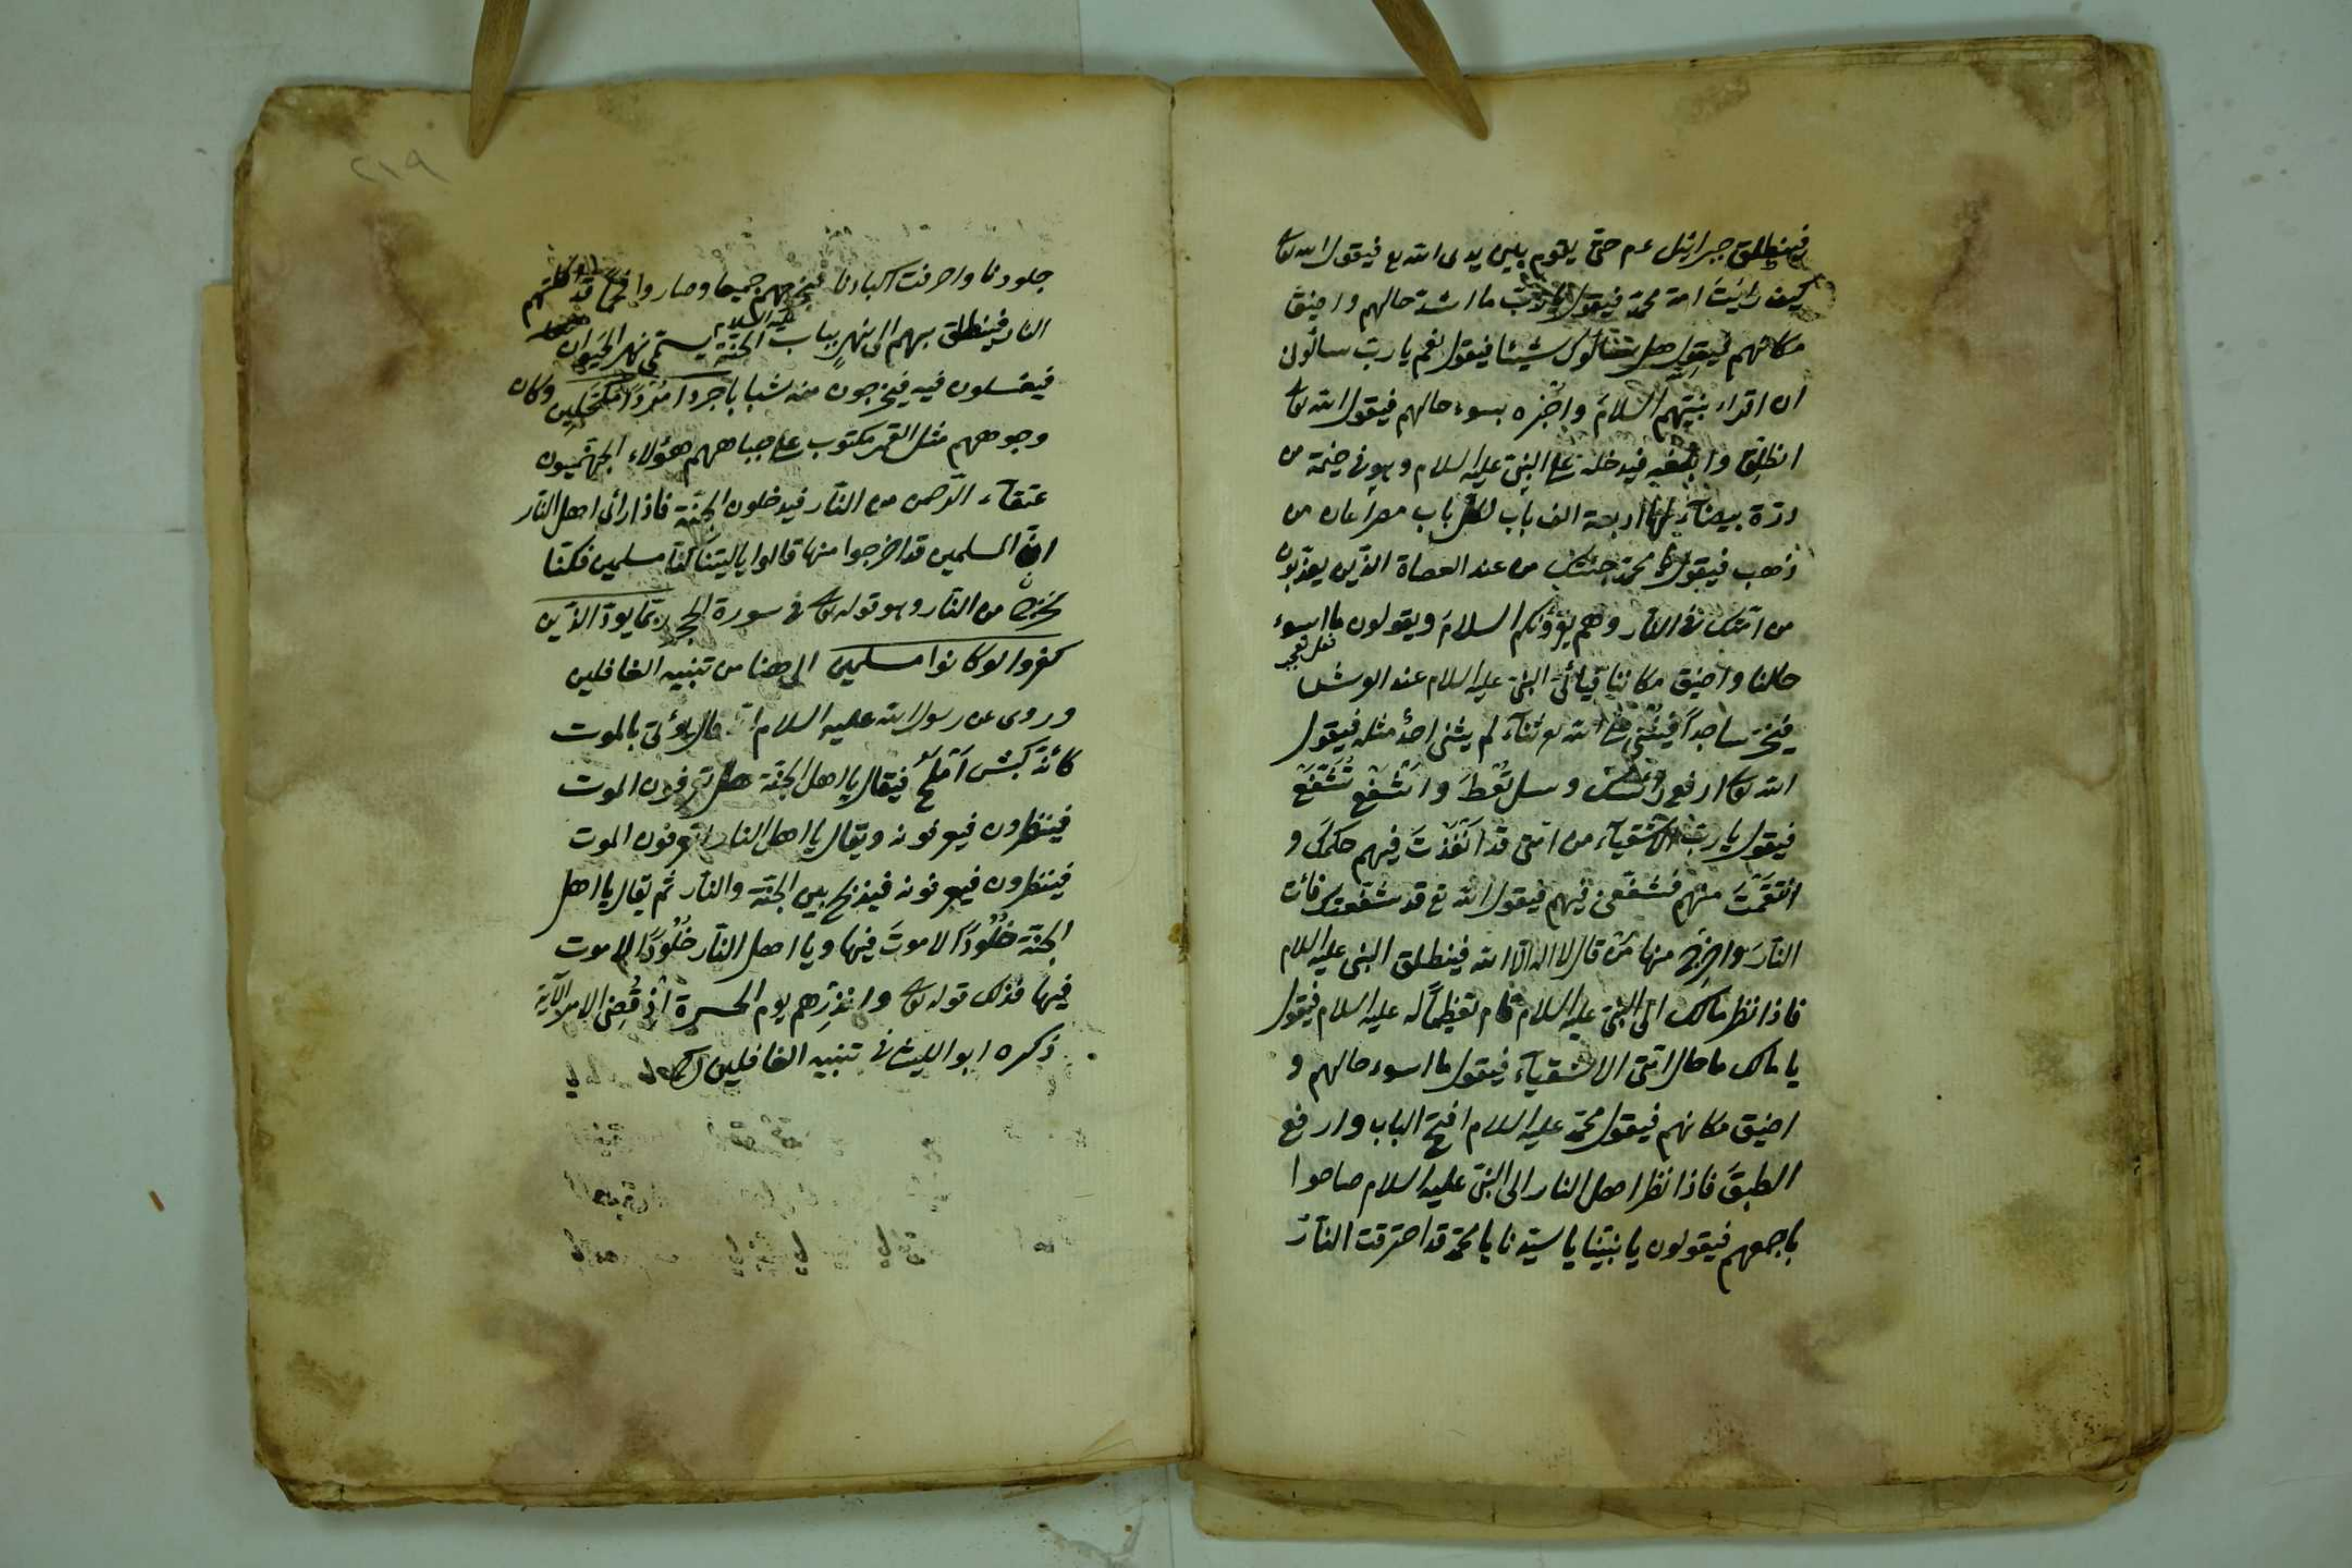 فينطلق جبرائيل عم حتى يقوم بين يدى الله تع فيقول الله تعا
كيف رايت امة محمد فيقول يا رب ما اشد حالهم واضيق
مكانهم فيقول هل سئالوك شيئا فيقول نعم يا رب سالونى
ان اقراء نبيّهم السلام واخبره بسوء حالهم فيقول الله تعا
انطلق وابلغه فيدخل على النبى عليه السلام وهو فى خيمة من
درة بيضاء لها اربعة الف باب لكل باب مصراعان من
ذهب فيقول يا محمد جئتك من عند العصاة الذين يعذبون
من امتك فى النار وهم يقرؤنكم السلام ويقولون ما اسوء
فعل تعجب
حالنا واضيق مكاننا فيأتى النبى عليه السلام عند العرش
فيخر ساجداً فيثنى على الله تع ثناء لم يثنى احدٌ مثله فيقول
الله تعا ارفع رأسك وسل تُعْطَ واشفع تُشَفَّعْ
فيقول يا رب الاشقياء من امتى قد انفذت فيهم حكمك و
انتقمت منهم فشفّعنى فيهم فيقول الله تع قد شفّعتك فائت
النار واخرج منها من قال لا اله الا الله فينطلق النبى عليه السلام
فاذا نظر مالك الى النبى عليه السلام قام تعظيماً له عليه السلام فيقول
يا مالك ما حال امتى الاشقياء فيقول ما اسوء حالهم و
اضيق مكانهم فيقول محمد عليه السلام افتح الباب وارفع
الطبق فاذا نظر اهل النار الى النبى عليه السلام صاحوا
باجمعهم فيقولون يا نبينا يا سيدنا يا محمد قد احترقت النار
٢١٩
جلودنا واحرقت اكبادنا فيخرجهم جميعا وصاروا فحما قد اكلتهم
النار فينطلق بهم الى نهر بباب الجنة يسمى نهر الحيوان
عليه السلام
فيغسلون فيه فيخرجون منه شبابا جردا مُرْدًا مكتحلين وكان
وجوههم مثل القمر مكتوب على جباههم هؤلاء الجهنميون
عتقاء الرحمن من النار فيدخلون الجنة فاذا رأى اهل النار
ان المسلمين قد اخرجوا منها قالوا يا ليتنا كنا مسلمين فكنا
نخرج من النار وهو قوله تعا فى سورة الحجر ربما يودّ الذين
كفروا لو كانوا مسلمين الى هنا من تنبيه الغافلين
وروى عن رسول الله عليه السلام انه قال يؤتى بالموت
كانّه كبش اَمْلَحُ فيقال يا اهل الجنة هل تعرفون الموت
فينظرون فيعرفونه ويقال يا اهل النار اتعرفون الموت
فينظرون فيعرفونه فيذبح بين الجنة والنار ثم يقال يا اهل
الجنة خُلُودًا لا موتَ فيها ويا اهل النار خُلُودًا لا موت
فيها فذلك قوله تعا وانذرهم يوم الحسرة اذ قُضِىَ الامر الآية
ذكره ابو الليث فى تنبيه الغافلين